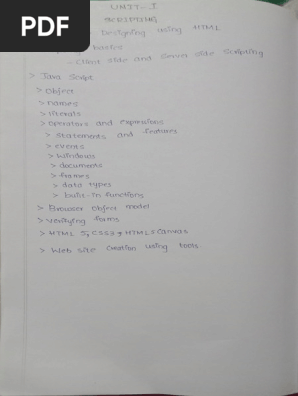 PDF
UNIT-I
SCRIPTING
Designing using HTML
basics
- client side and server side scripting
> Java Script
> Object
> names
> literals
> operators and expressions
> statements and features
> events
> windows
> documents
> frames
> data types
> built-in functions
> Browser object model
> Verifying forms
> HTML 5, CSS3, HTML5 Canvas
> Web site creation using tools.